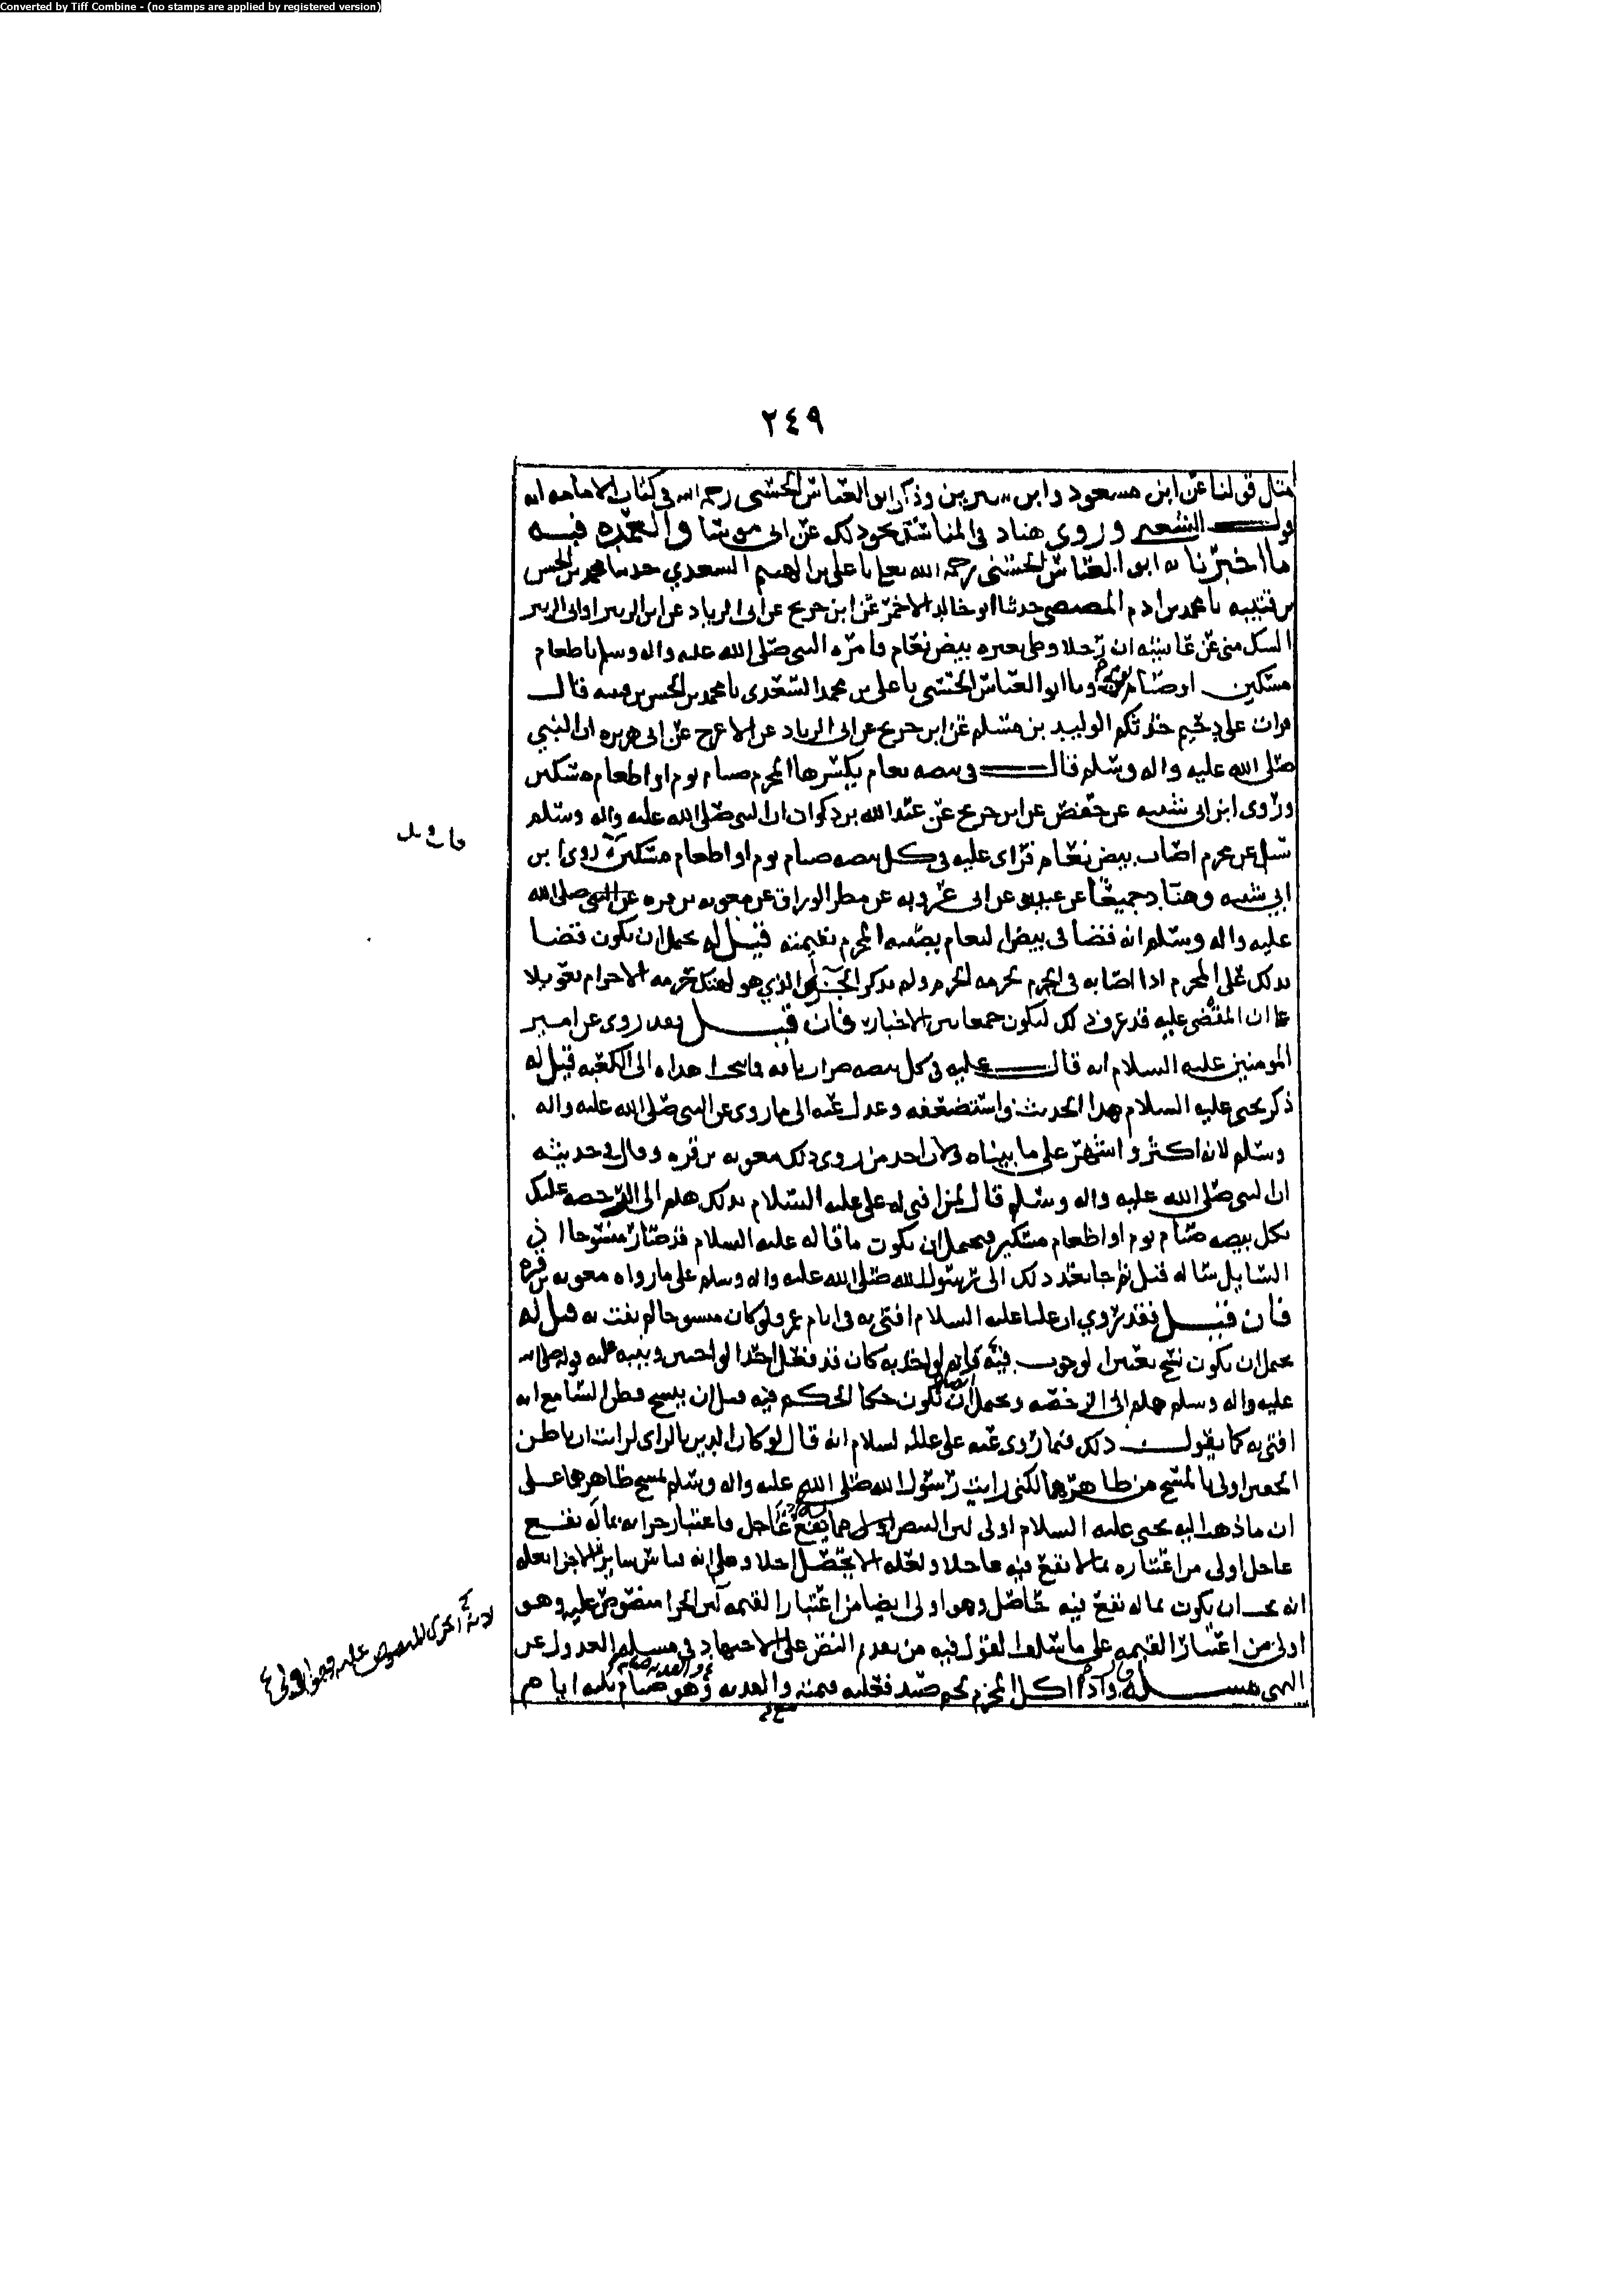 Converted by Tiff Combine - (no stamps are applied by registered version)
٢٤٩
مثال قولنا عن ابن مسعود وابن سيرين وذكر ابو العباس الحسني رحمه الله في كتاب الامامه انه
قول الشعبي وروى هناد في المناسك نحو ذلك عن ابي موسا والعمده فيه
ما اخبرنا به ابو العباس الحسني رحمه الله نعلى انا علي بن الهيثم السعدي حدثنا محمد بن الحسن
بن قتيبه نا محمد بن ادم المصيصي حدثنا ابو خالد الاحمر عن ابن جريج عن ابي الزياد عن ابن الزبير او ابي الزبير
السك مني عن عايشه ان رجلا وطى بعيره بيض نعام فامره النبي صلى الله عليه واله وسلم باطعام
مسكين او صيام يوم ونا ابو العباس الحسني نا علي بن محمد السعدي نا محمد بن الحسن بن قتيبه قال
قرات على دحيم حدثكم الوليد بن مسلم عن ابن جريج عن ابي الزياد عن الاعرج عن ابي هريره ان النبي
صلى الله عليه واله وسلم قال في بيضه نعام يكسرها المحرم صيام يوم او اطعام مسكين
وروى ابن ابي شيبه عن حفص عن ابن جريج عن عبد الله بن ذكوان ان النبي صلى الله عليه واله وسلم
سئل عن محرم اصاب بيض نعام فراى عليه في كل بيضه صيام يوم او اطعام مسكين روى ابن
ابي شيبه وهناد جميعا عن عبده عن ابي عروبه عن مطر الوراق عن معويه بن قره عن النبي صلى الله
عليه واله وسلم انه قضا في بيض النعام يصيبه المحرم بقيمته قيل له يحتمل ان يكون قضا
بذلك على المحرم اذا اصابه في الحرم لحرمه الحرم ولم يذكر الجزا الذي هو لهتك حرمه الاحرام تعويلا
على ان المقضى عليه قد عرف ذلك ليكون جمعا بين الاخبار فان قيل فقد روى عن امير
المومنين عليه السلام انه قال عليه في كل بيضه ضراب ناقه فما نتج اهداه الى الكعبه قيل له
ذكر يحيى عليه السلام هذا الحديث واستضعفه وعدل عنه الى ما روى عن النبي صلى الله عليه واله
وسلم لانه اكثر واشهر على ما بيناه ولان احد من روى ذلك معويه بن قره وقال في حديثه
ان النبي صلى الله عليه واله وسلم قال لمن افتى له علي عليه السلام بذلك هلم الى الرخصه عليك
بكل بيضه صيام يوم او اطعام مسكين فيحتمل ان يكون ما قاله عليه السلام قد صار منسوخا اذ
السايل ساله قبل ثم جا بعد ذلك الى رسول الله صلى الله عليه واله وسلم على ما رواه معويه بن قره
فان قيل فقد روي ان عليا عليه السلام افتى به في ايام عمر ولو كان منسوخا لم يفت به قيل له
يحتمل ان يكون نسخ تعيين الوجوب فيه فانه لو اخذ به كان قد فعل احد الواجبين ونبه عليه قوله صلى الله
عليه واله وسلم هلم الى الرخصه ويحتمل ايضا ان يكون حكا الحكم فيه قبل ان ينسخ فظن السامع انه
افتى به كما يقول ذلك فيما روى عنه علي عليه السلام انه قال لو كان الدين بالراى لرايت ان باطن
الخفين اولى بالمسح من ظاهرهما لكني رايت رسول الله صلى الله عليه واله وسلم مسح ظاهرهما على
ان ما ذهب اليه يحيى عليه السلام اولى لان البيض مما له نفع عاجل فاعتبار جزايه بما له نفع
عاجل اولى من اعتباره بما لا نفع فيه عاجلا ولعله لا يحصل اجلا وعلى انه قياس ساير الاجزا بعله
انه يجب ان يكون بما له نفع فيه حاصل وهو اولى ايضا من اعتبار القيمه لان الجزا منصوص عليه وهو
اولى من اعتبار القيمه على ما سلف القول فيه من تقديم النص على الاجتهاد في مسله العدول عن
الهدي مسله واذا اكل المحرم لحم صيد فعليه قيمته والفديه وهو صيام ثلثه ايام
لانه اجرى المنصوص عليه وهو اولى